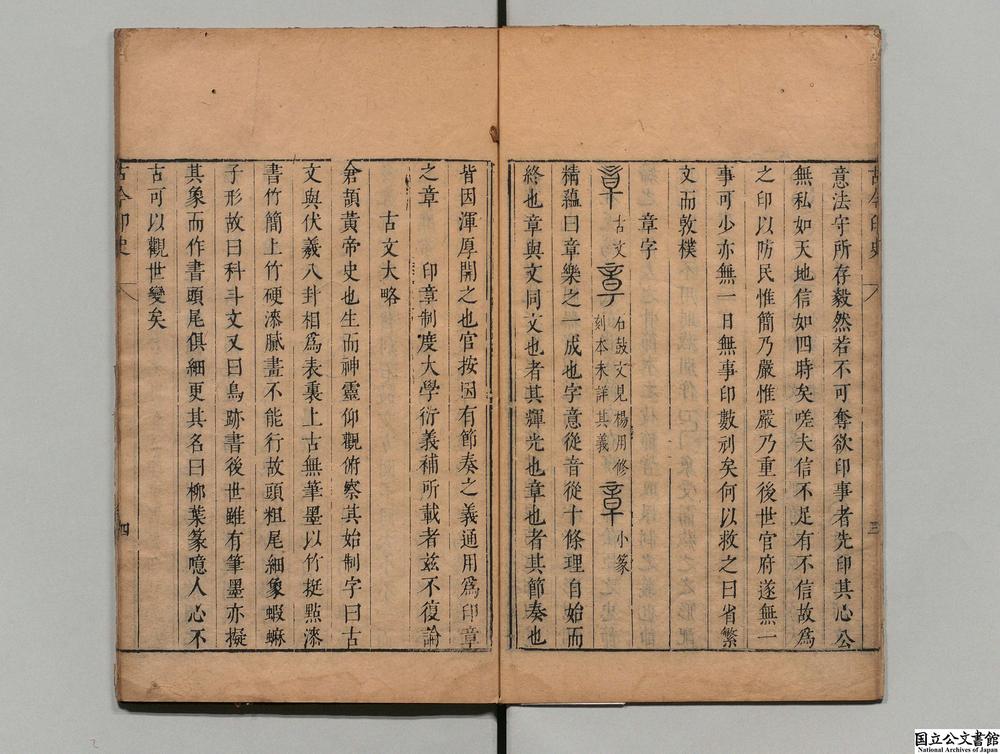 古今印史
三
意法守所存毅然若不可奪欲印事者先印其心公
無私如天地信如四時矣嗟夫信不足有不信故為
之印以防民惟簡乃嚴惟嚴乃重後世官府遂無一
事可少亦無一日無事印數刓矣何以救之曰省繁
文而敦樸
章字
古文 石鼓文見楊用修刻本未詳其義 章 小篆
精蘊曰章樂之一成也字意從音從十條理自始而
終也章與文同文也者其輝光也章也者其節奏也
皆因渾厚開之也官按因有節奏之義通用爲印章
之章 印章制度大學衍義補所載者茲不復論
古文大略
倉頡黃帝史也生而神靈仰觀俯察其始制字曰古
文與伏羲八卦相爲表裏上古無筆墨以竹挺點漆
書竹簡上竹硬漆膩畫不能行故頭粗尾細象蝦蟆
子形故曰科斗文又曰鳥跡書後世雖有筆墨亦擬
其象而作書頭尾俱細更其名曰柳葉篆噫人心不
古可以觀世變矣
古今印史
四
国立公文書館
National Archives of Japan